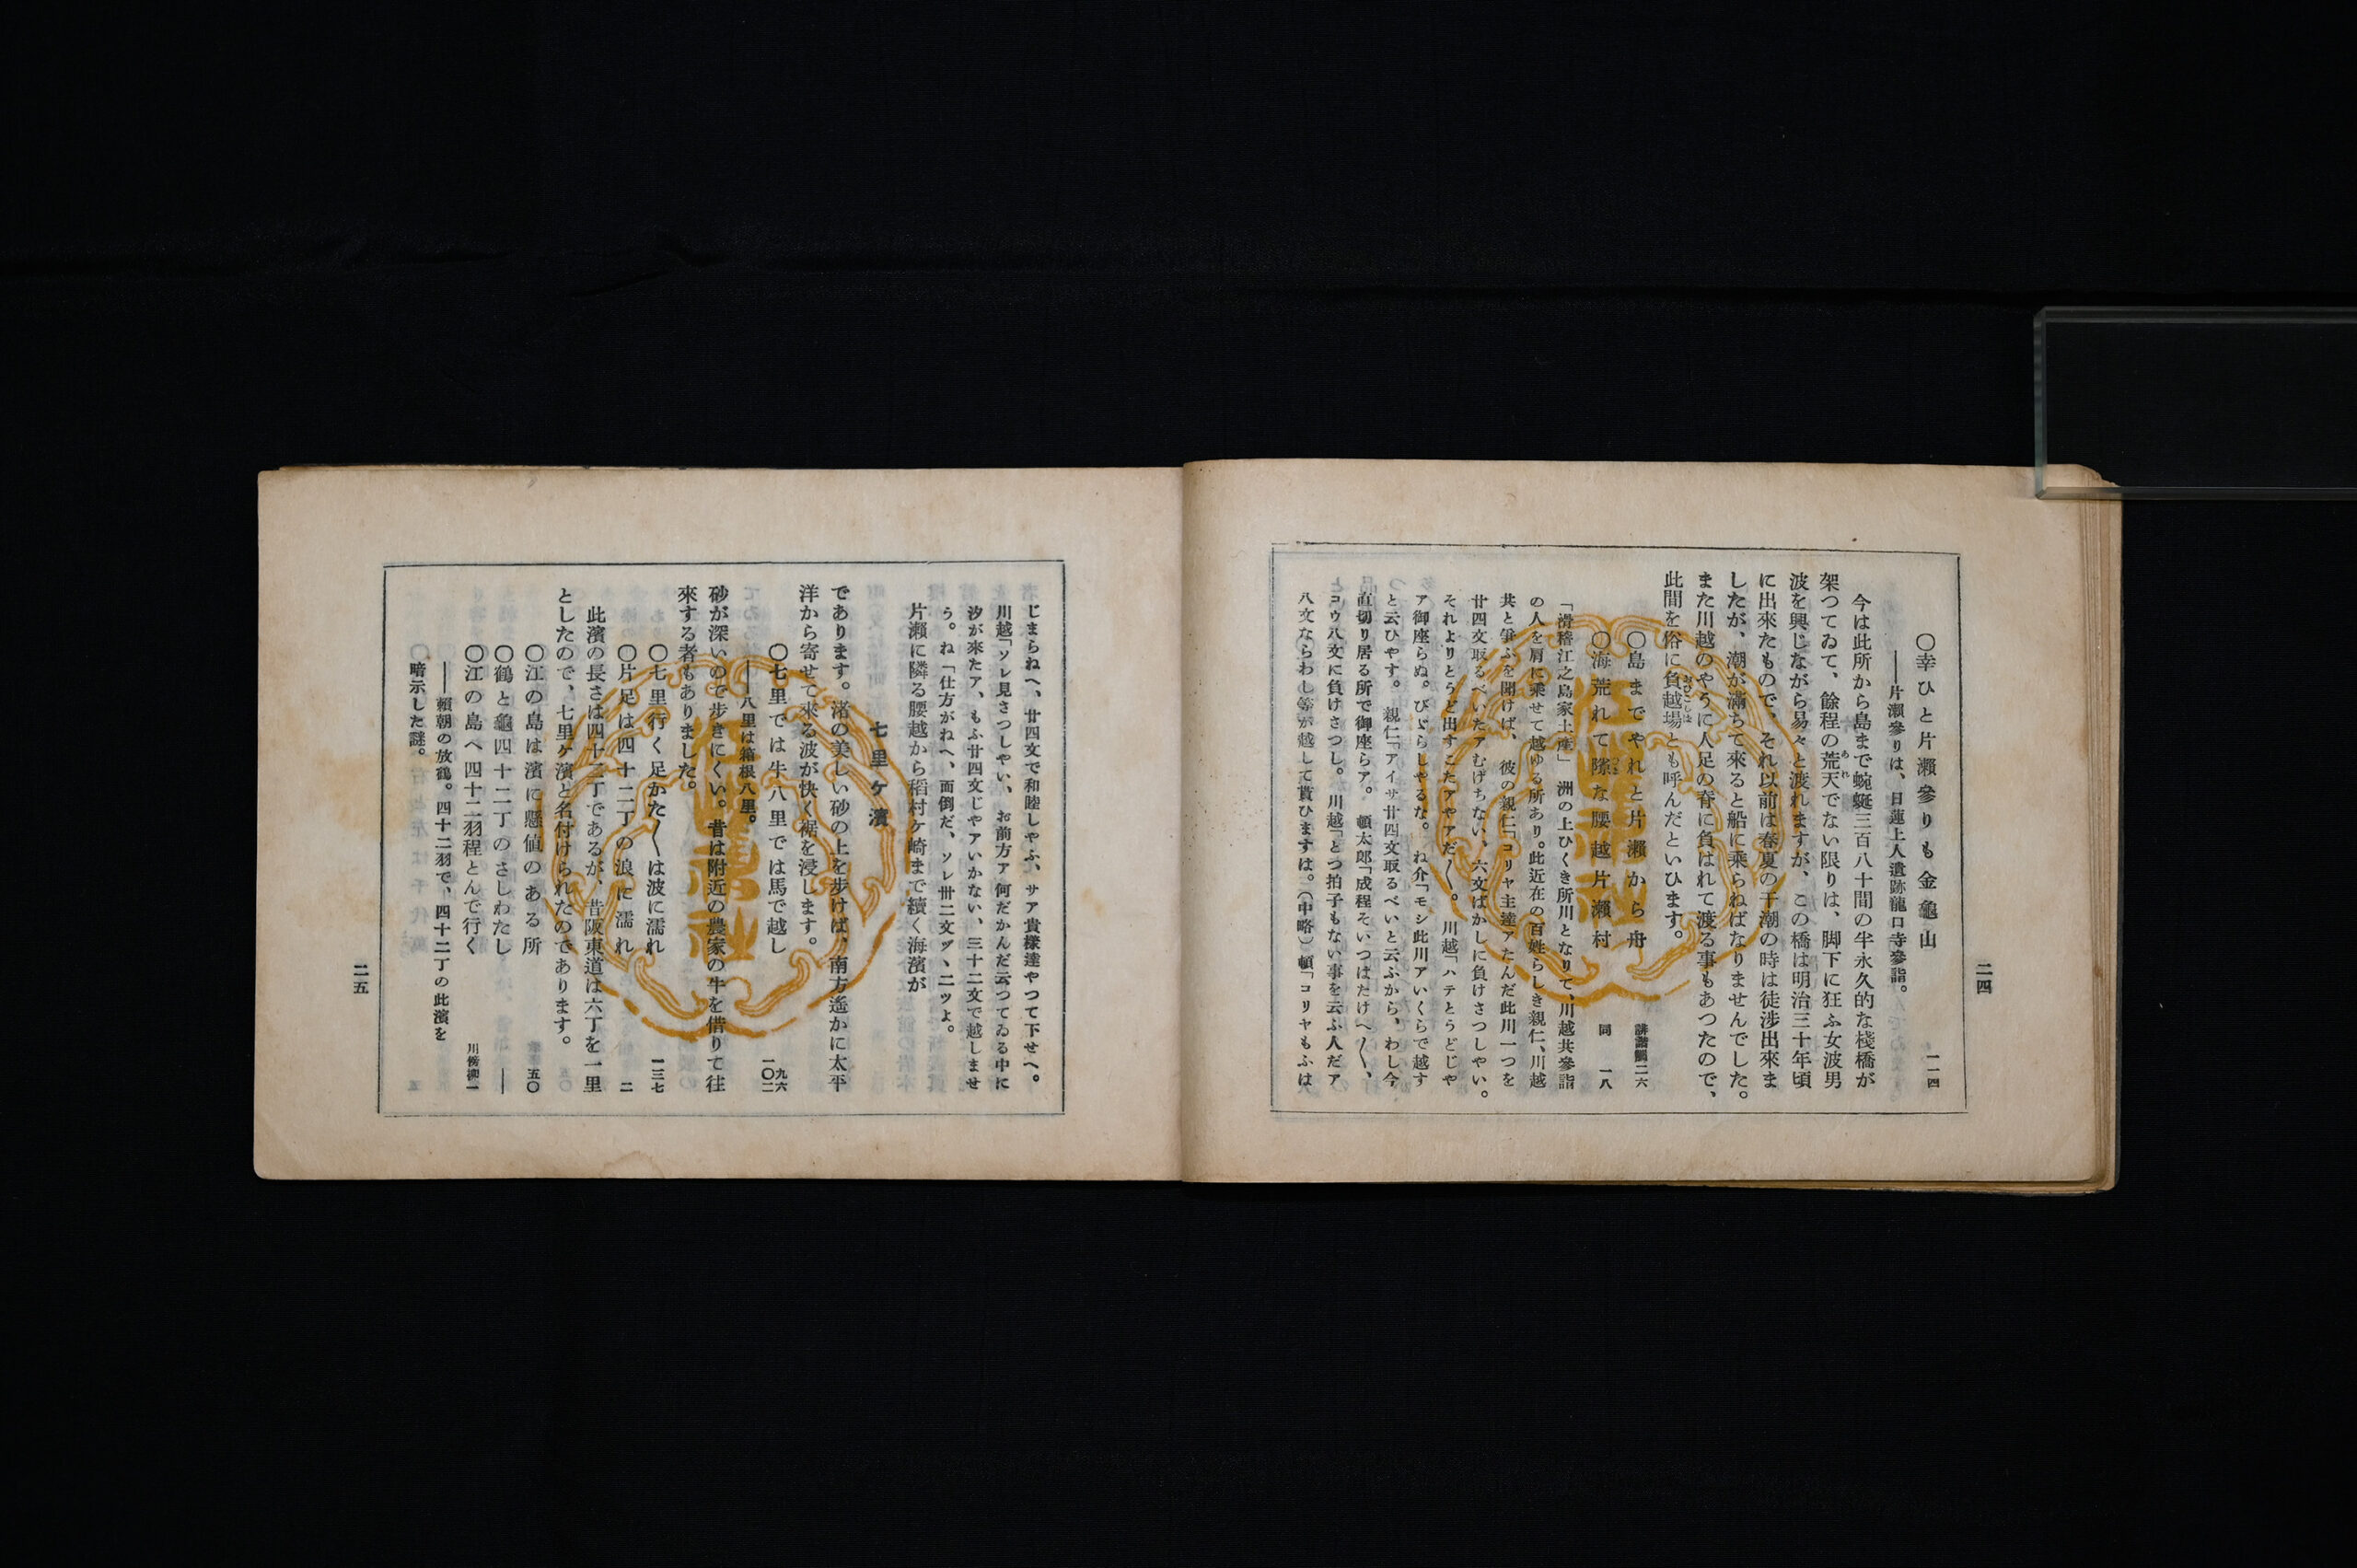 二四
〇幸ひと片瀬參りも金龜山 一一四
――片瀬參りは、日蓮上人遺跡龍口寺參詣。
今は此所から島まで蜿蜒三百八十間の半永久的な棧橋が
架つてゐて、餘程の荒天でない限りは、脚下に狂ふ女波男
あれ
波を興じながら易々と渡れますが、この橋は明治三十年頃
に出來たもので、それ以前は春夏の干潮の時は徒渉出來ま
したが、潮が滿ちて來ると船に乘らねばなりませんでした。
また川越のやうに人足の脊に負はれて渡る事もあつたので、
此間を俗に負越場とも呼んだといひます。
おひこしば
〇島までやれと片瀬から舟 誹諧觿二六
〇海荒れて隙な腰越片瀬村 同 一八
「滑稽江之島家土産」 洲の上ひくき所川となりて、川越共參詣
の人を肩に乘せて越ゆる所あり。此近在の百姓らしき親仁、川越
共と爭ふを聞けば、彼の親仁「コリヤ主達アたんだ此川一つを
廿四文取るべいたアむげちない、六文ばかしに負けさつしやい。
それよりとうど出すこたアやアだ〱。 川越「ハテとうどじや
ア御座らぬ。びよらしやるな。ね介「モシ此川アいくらで越す
と云ひやす。 親仁「アイサ廿四文取るべいと云ふから、わし今
直切り居る所で御座らア。 頓太郎「成程そいつはたけへ〱、
コウ八文に負けさつし。 川越「とつ拍子もない事を云ふ人だア
八文ならわし等が越して貰ひますは。(中略)頓「コリヤもふは
じまらねへ、廿四文で和睦しやふ、サア貴樣達やつて下せへ。
川越「ソレ見さつしやい、お前方ア何だかんだ云つてゐる中に
汐が來たア、もふ廿四文じやアいかない、三十二文で越しませ
う。ね「仕方がねへ、面倒だ、ソレ卅二文ヅヽ二ツよ。
片瀬に隣る腰越から稻村ケ崎まで續く海濱が
七里ケ濱
であります。渚の美しい砂の上を歩けば、南方遙かに太平
洋から寄せて來る波が快く裾を浸します。
〇七里では牛八里では馬で越し 九六 一〇二
――八里は箱根八里。
砂が深いので歩きにくい。昔は附近の農家の牛を借りて往
來する者もありました。
〇七里行く足かた〱は波に濡れ 一三七
〇片足は四十二丁の浪に濡れ 二
此濱の長さは四十二丁であるが、昔阪東道は六丁を一里
としたので、七里ケ濱と名付けられたのであります。
〇江の島は濱に懸値のある所 五〇
〇鶴と龜四十二丁のさしわたし ――
〇江の島へ四十二羽程とんで行く 川傍柳一
――賴朝の放鶴。四十二羽で、四十二丁の此濱を
暗示した謎。
二五